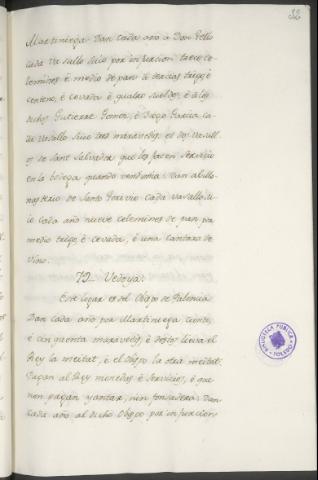 32
Martiniega. Dan cada año a Don Tello
cada vasallo suio por infurcion nueve ce-
lemines é medio de pan tercias trigo é
centeno, é cevada é quatro sueldos, é á los
dichos Gutierre Gomez, é Diego Garcia ca-
da vasallo suio tres maravedis, et los vasallos
de Sant Salvador que les facen servicio
en la bodega quando vendimia: Dan al Mo-
nasterio de Santo Toravio cada vasallo su-
io cada año nueve celemines de pan por
medio trigo, é cevada, é una cantara de
vino.
72. Vedoya.
Este logar es del Obispo de Palencia
Dan cada año por Martiniega ciento,
é cinquenta maravedis, é destos lieva el
Rey la meitat, é el Obispo la otra meitat.
Pagan al Rey monedas é servicios, é que
non pagan yantar, nin fonsadera: Dan
cada año al dicho Obispo por infurcion
BIBLIOTECA PUBLICA
TOLEDO